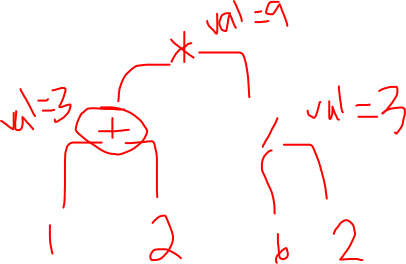 * val=9
val=3 + / val=3
1 2 6 2